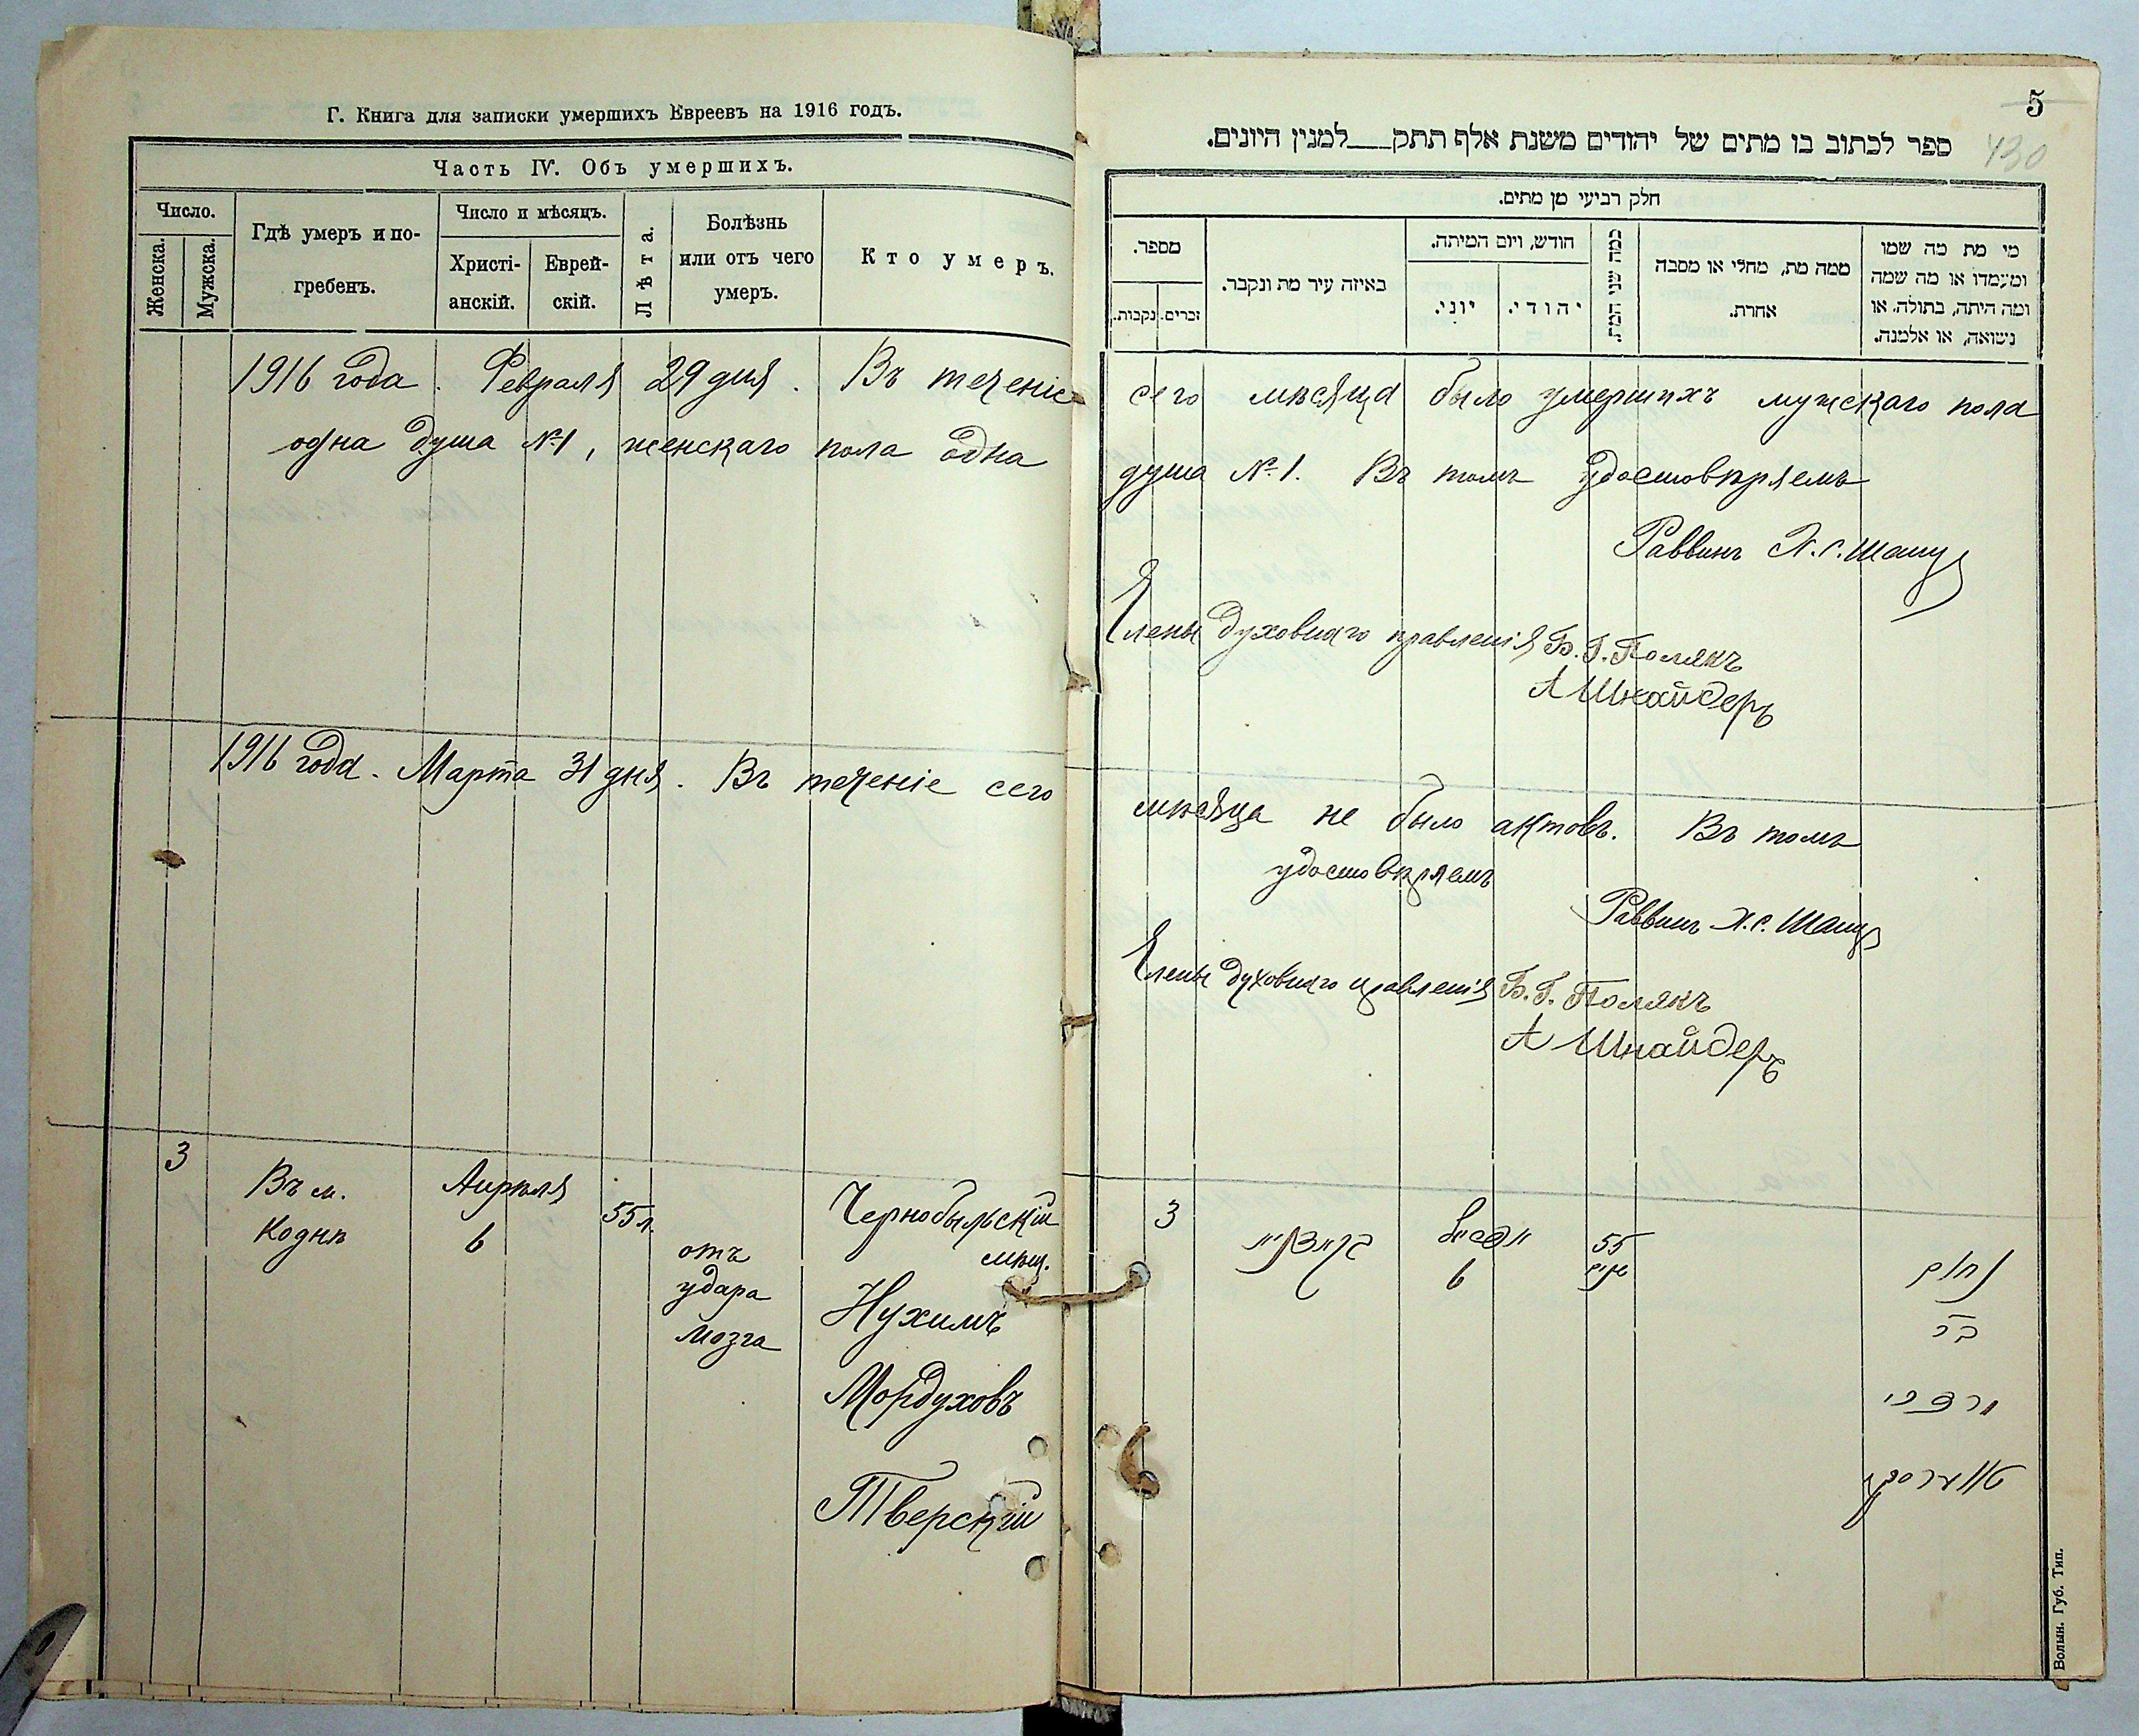 Г. Книга для записки умершихъ Евреевъ на 1916 годъ.
Часть IV. Объ умершихъ.
Число.
Женска.
Мужска.
Гдѣ умеръ и по-
гребенъ.
Число и мѣсяцъ.
Христі-
анскій.
Еврей-
скій.
Лѣта.
Болѣзнь
или отъ чего
умеръ.
Кто умеръ.
1916 года. Февраля 29 дня. Въ теченіе
одна душа №1, женскаго пола одна
1916 года. Марта 31 дня. Въ теченіе сего
3
Въ м.
Коднѣ
Апрѣля
6
55 л.
отъ
удара
мозга
Чернобыльскій
мѣщ.
Нухимъ
Мордуховъ
Тверскій
5
430
ספר לכתוב בו מתים של יהודים משנת אלף תתק___למנין היונים.
חלק רביעי מן מתים.
מספר.
זכרים.
נקבות.
באיזה עיר מת ונקבר.
חודש, ויום המיתה.
יוני.
יהודי.
כמה שני המת.
ממה מת, מחלי או מסבה
אחרת.
מי מת מה שמו
ומעמדו או מה שמה
ומה היתה, בתולה, או
נשואה, או אלמנה.
сего мѣсяца было умершихъ мужскаго пола
душа №1. Въ томъ удостовѣряемъ
Раввинъ
Члены духовнаго правленія Б. Г. Полякъ
А Шнайдеръ
мѣсяца не было актовъ. Въ томъ
удостовѣряемъ
Раввинъ
Члены духовнаго правленія Б. Г. Полякъ
А Шнайдеръ
3
אפריל
6
55
שנים
נחום
בר
מרדכי
טווערסקי
Волын. Губ. Тип.